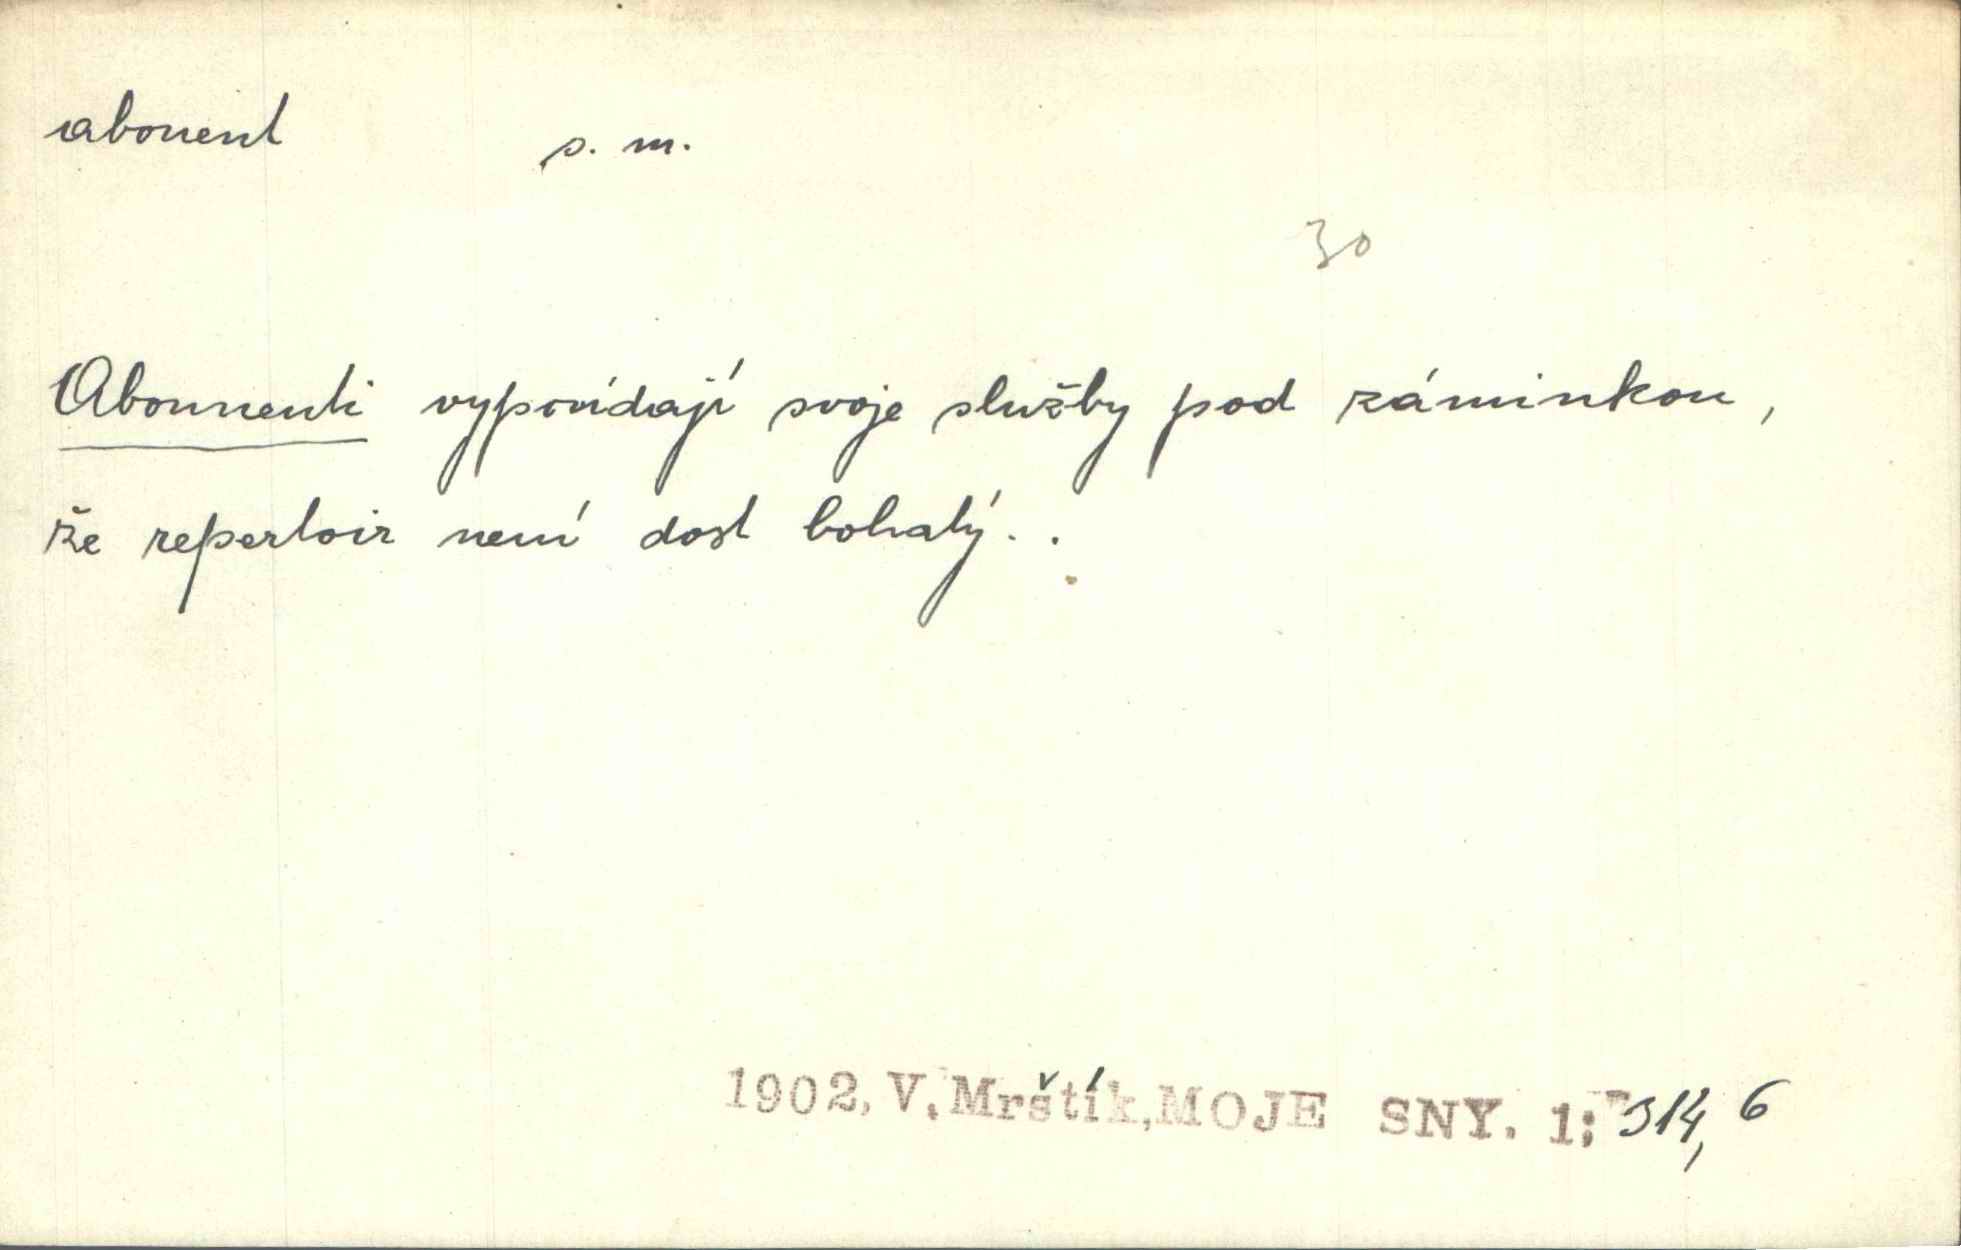 abonent s. m.
30
Abonnenti vypovídají svoje služby pod záminkou,
že repertoir není dost bohatý. .
1902, V. Mrštík, MOJE SNY. 1; 314, 6